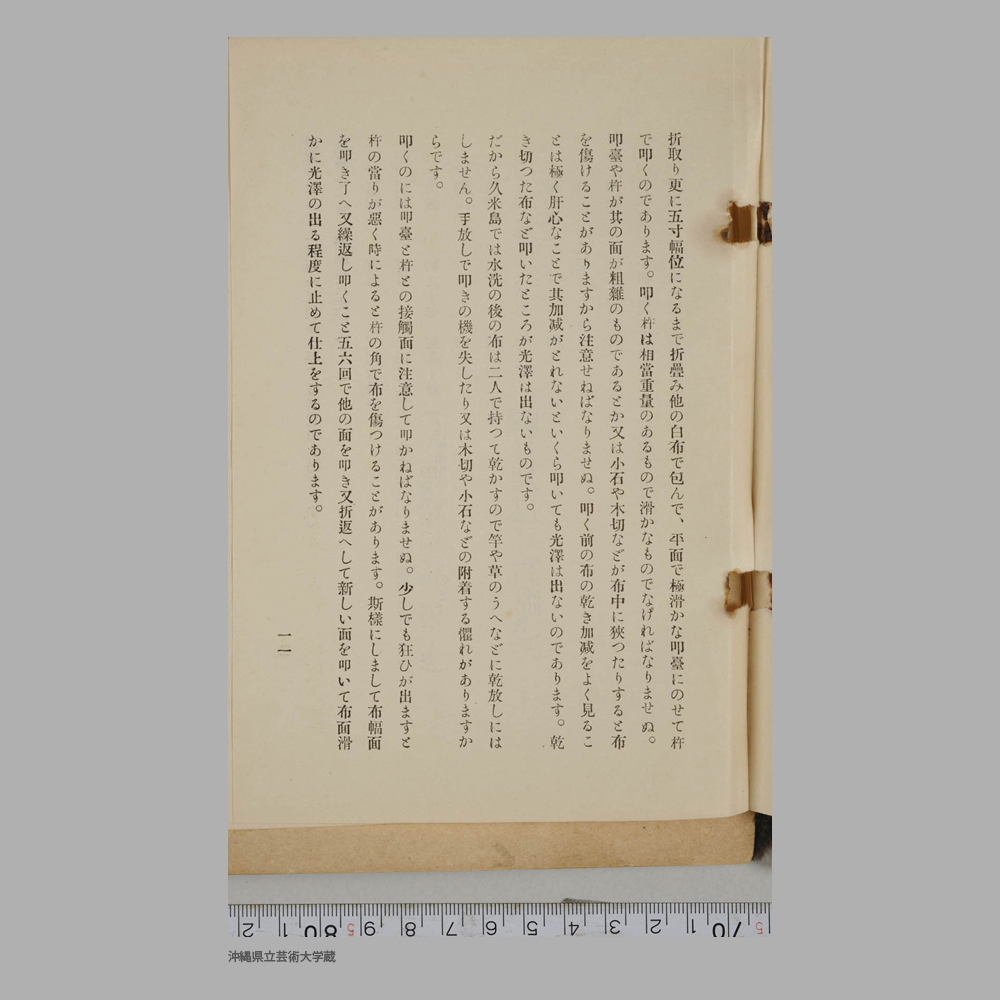 折取り更に五寸幅位になるまで折疊み他の白布で包んで、平面で極滑かな叩臺にのせて杵
で叩くのであります。叩く杵は相當重量のあるもので滑かなものでなければなりませぬ。
叩臺や杵が其の面が粗雜のものであるとか又は小石や木切などが布中に狹つたりすると布
を傷けることがありますから注意せねばなりませぬ。叩く前の布の乾き加减をよく見るこ
とは極く肝心なことで其加减がとれないといくら叩いても光澤は出ないのであります。乾
き切つた布など叩いたところが光澤は出ないものです。
だから久米島では水洗の後の布は二人で持つて乾かすので竿や草のうへなどに乾放しには
しません。手放しで叩きの機を失したり又は木切や小石などの附着する懼れがありますか
らです。
叩くのには叩臺と杵との接觸面に注意して叩かねばなりませぬ。少しでも狂ひが出ますと
杵の當りが惡く時によると杵の角で布を傷つけることがあります。斯樣にしまして布幅面
を叩き了へ又繰返し叩くこと五六回で他の面を叩き又折返へして新しい面を叩いて布面滑
かに光澤の出る程度に止めて仕上をするのであります。
一一
2 1 80 5 9 8 7 6 5 4 3 2 1 70 5
沖縄県立芸術大学蔵